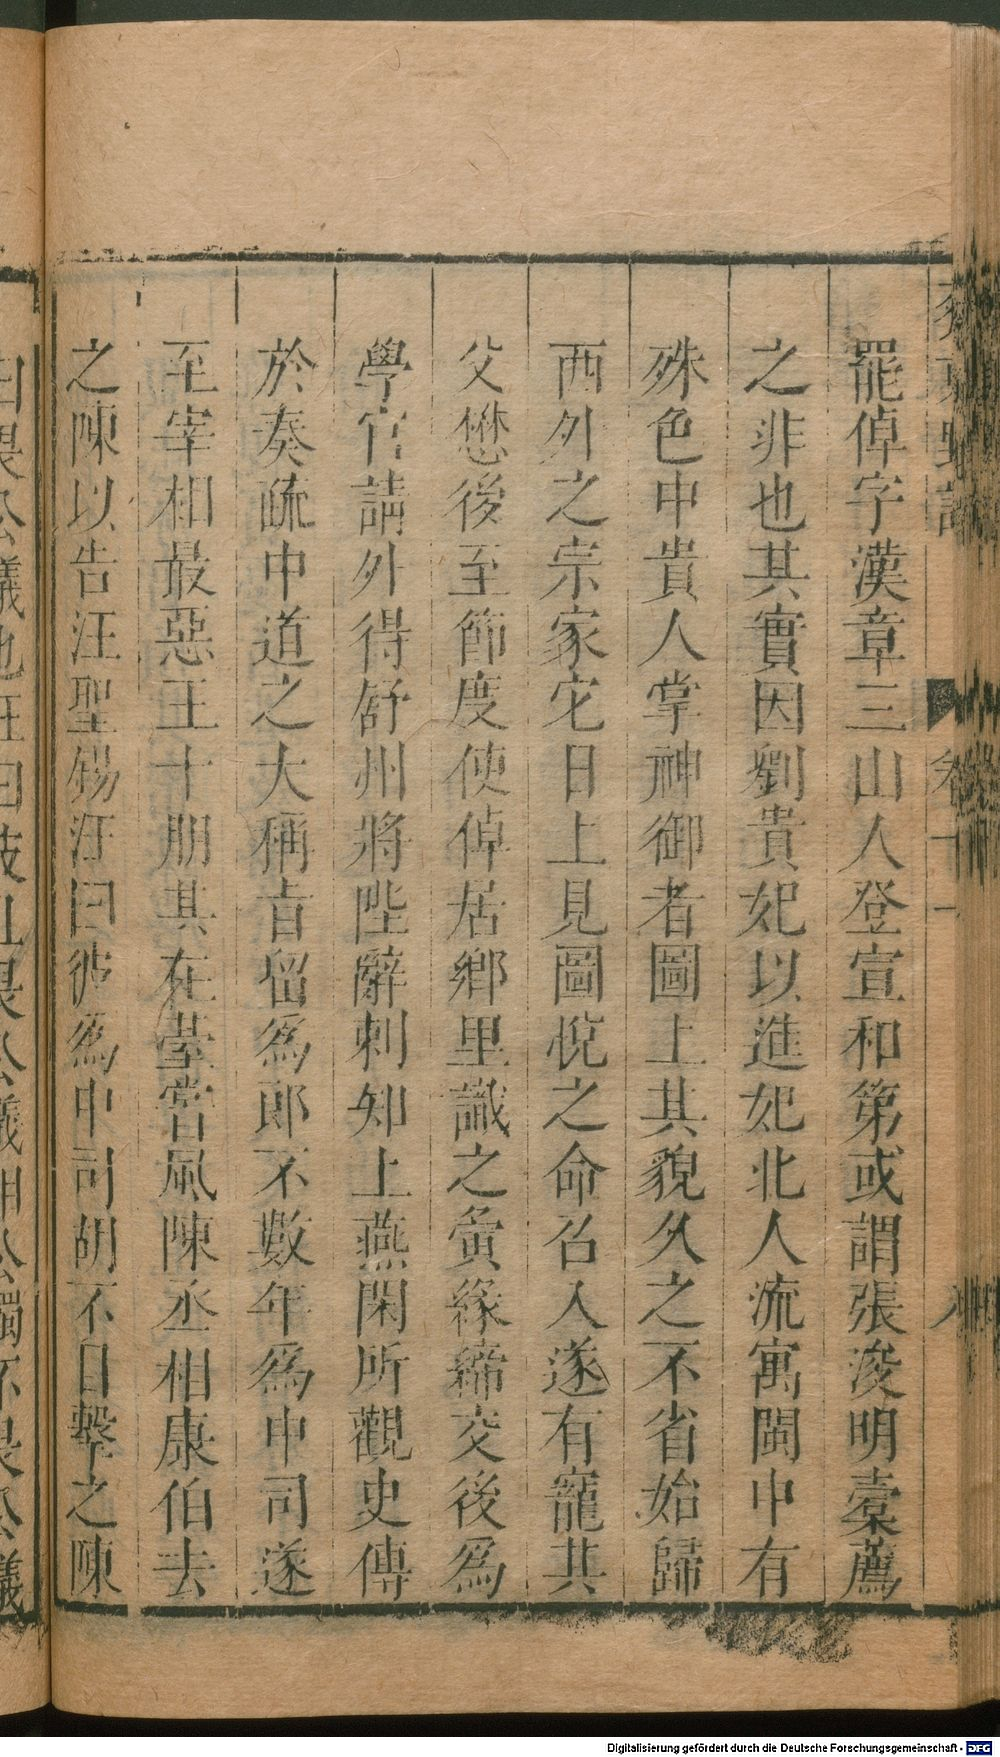 罷倬字漢章三山人登宣和第或謂張浚明橐薦
之非也其實因劉貴妃以進妃北人流寓閩中有
殊色中貴人掌神御者圖上其貌久之不省始歸
西外之宗家它日上見圖悅之命召入遂有寵其
父懋後至節度使倬居鄉里識之夤緣締交後為
學官請外得舒州將陛辭刺知上燕閑所觀史傳
於奏疏中道之大稱旨留為郎不數年為中司遂
至宰相最惡王十朋其在臺嘗風陳丞相康伯去
之陳以告汪聖錫汪曰彼為中司胡不自擊之陳
卷十一
Digitalisierung gefördert durch die Deutsche Forschungsgemeinschaft - DFG